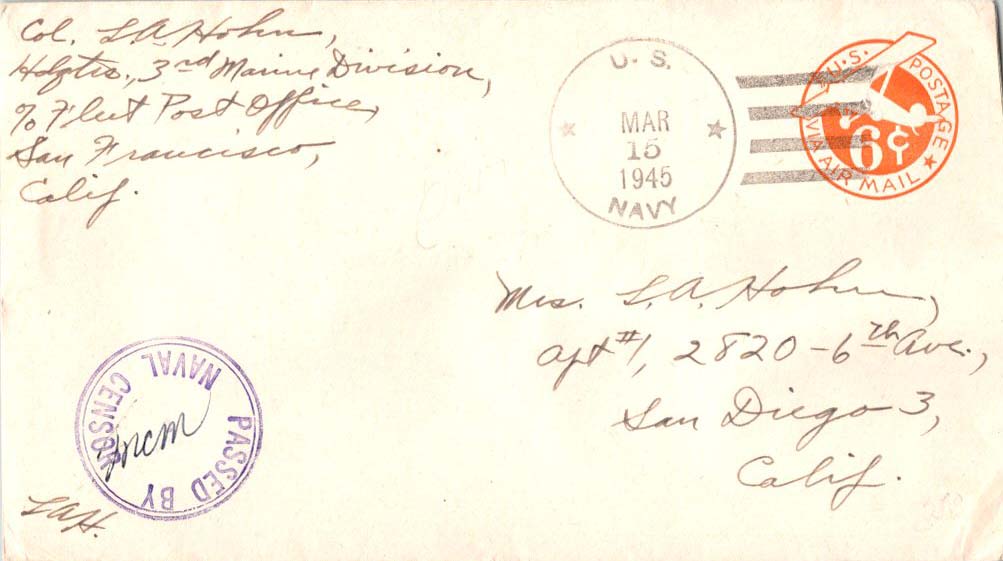 Col. L A Hohn,
Hdqtrs., 3rd Marine Division,
c/o Fleet Post Office,
San Francisco,
Calif.
U. S.
MAR
15
1945
NAVY
U.S. POSTAGE
6¢
VIA AIR MAIL
Mrs. L. A. Hohn,
Apt #1, 2820-6th Ave.,
San Diego 3,
Calif.
PASSED BY
NAVAL CENSOR
mcm
LAH.